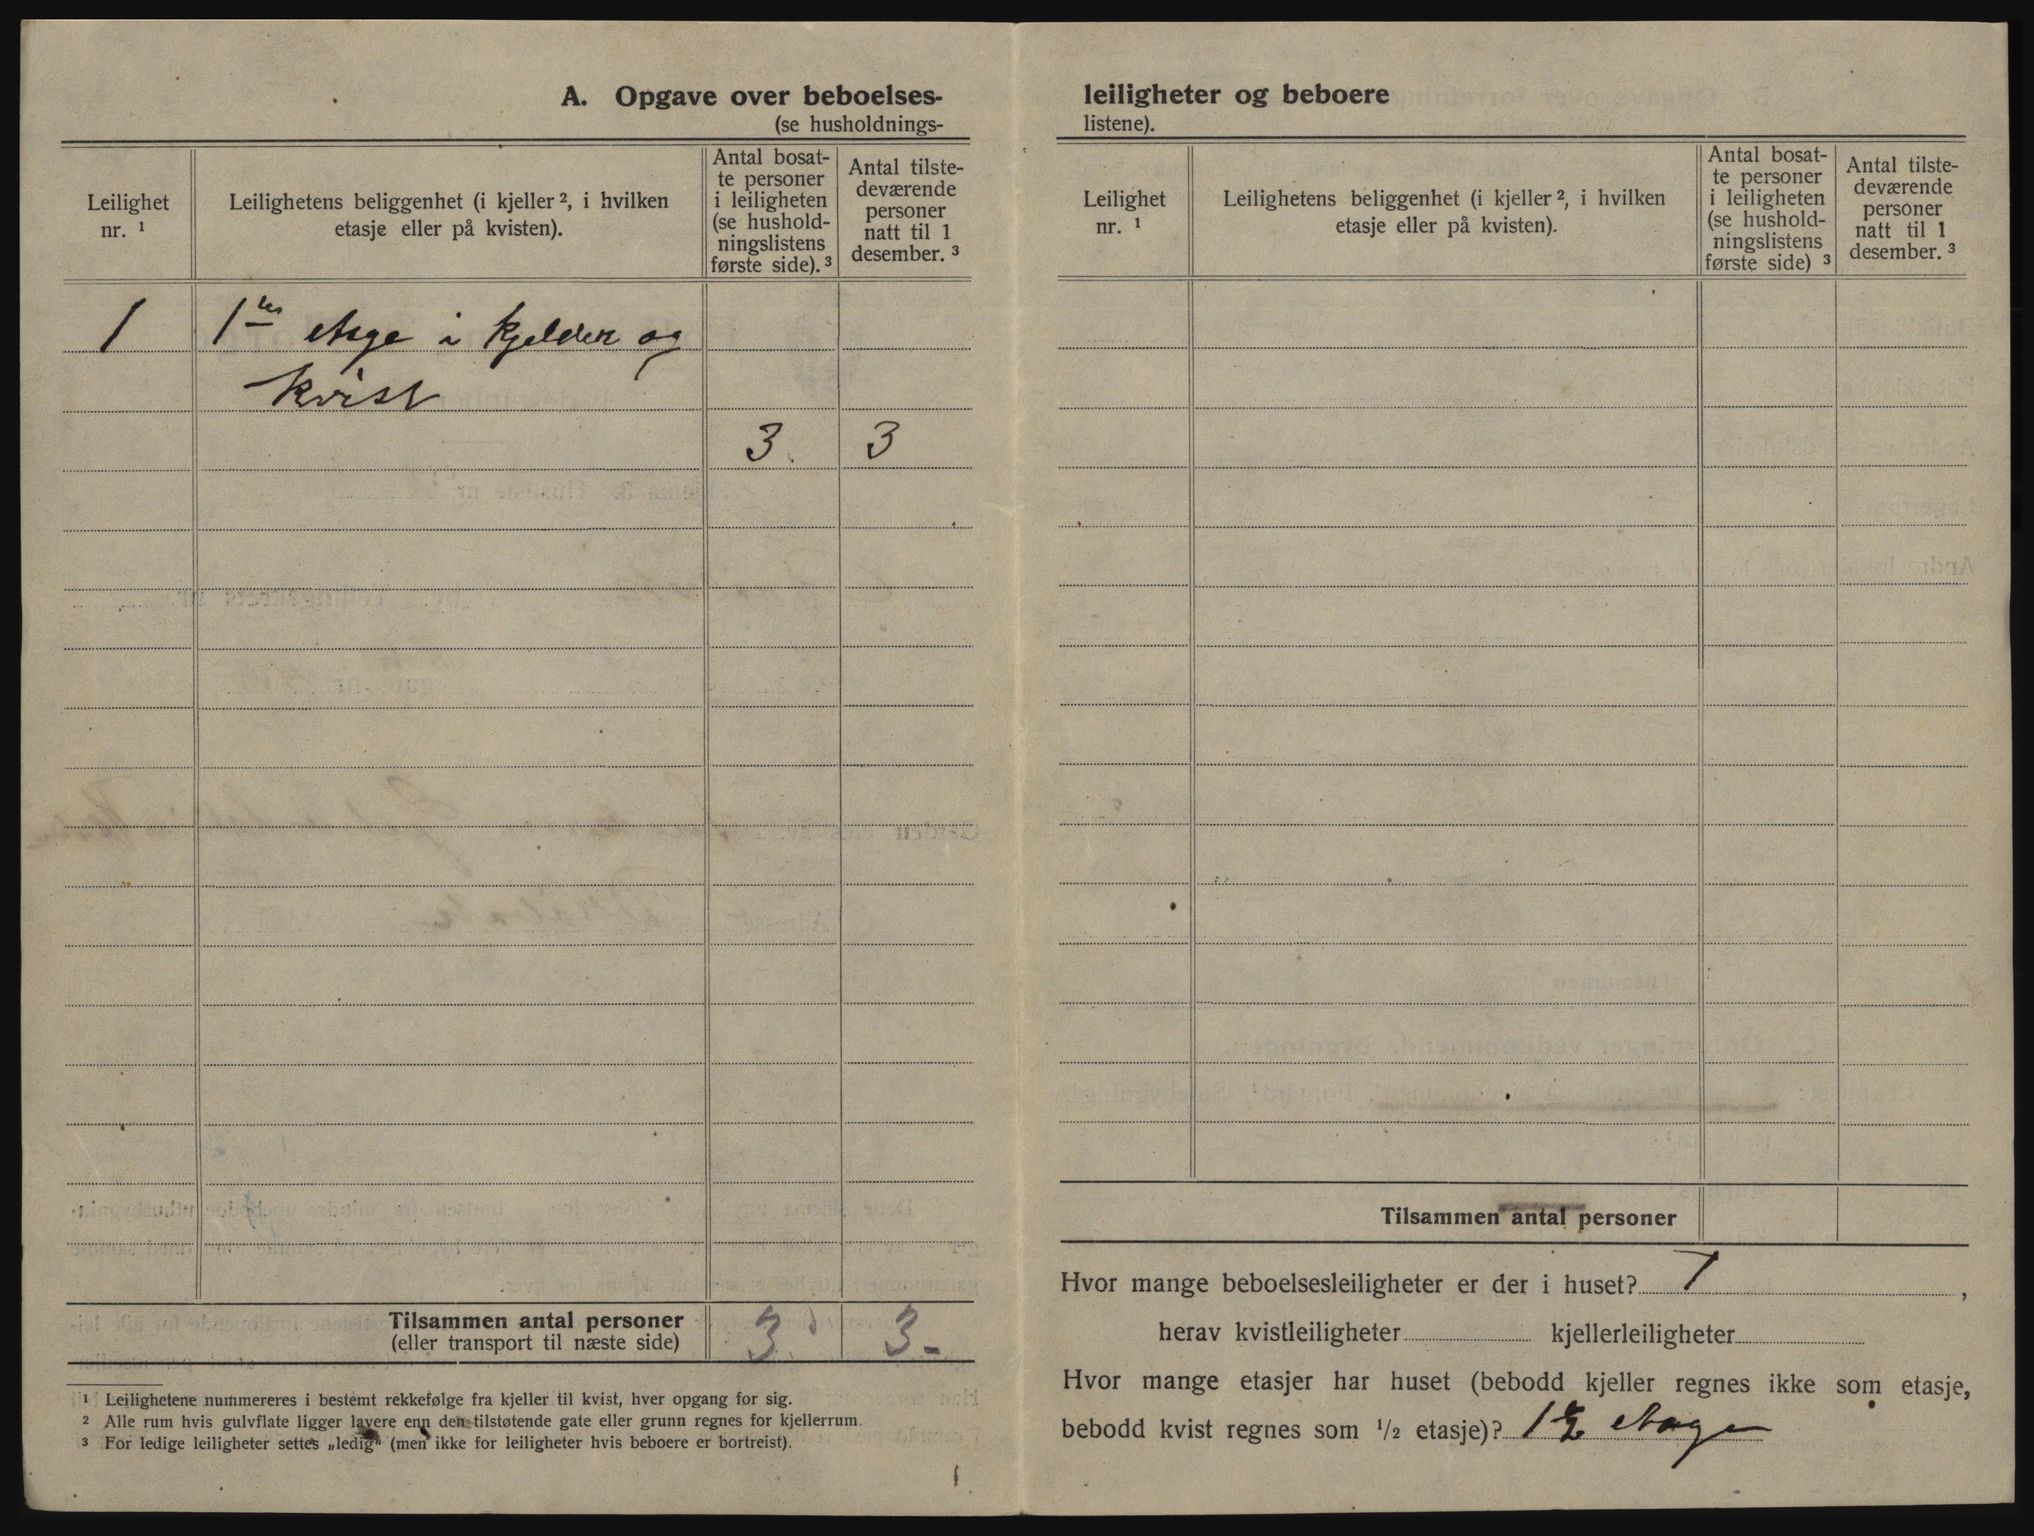 A. Opgave over beboelses-
(se husholdnings-
Leilighet nr. ¹
Leilighetens beliggenhet (i kjeller ², i hvilken etasje eller på kvisten).
Antal bosat-
te personer
i leiligheten
(se hushold-
ningslistens
første side). ³
Antal tilste-
deværende
personer
natt til 1
desember. ³
1 1ste etage i kjelder og
kvist
3. 3
Tilsammen antal personer 3. 3-
(eller transport til næste side)
¹ Leilighetene nummereres i bestemt rekkefølge fra kjeller til kvist, hver opgang for sig.
² Alle rum hvis gulvflate ligger lavere enn den tilstøtende gate eller grunn regnes for kjellerrum.
³ For ledige leiligheter settes „ledig" (men ikke for leiligheter hvis beboere er bortreist).
leiligheter og beboere
listene).
Leilighet nr. ¹
Leilighetens beliggenhet (i kjeller ², i hvilken etasje eller på kvisten).
Antal bosat-
te personer
i leiligheten
(se hushold-
ningslistens
første side) ³
Antal tilste-
deværende
personer
natt til 1
desember. ³
Tilsammen antal personer
Hvor mange beboelsesleiligheter er der i huset? 1,
herav kvistleiligheter kjellerleiligheter
Hvor mange etasjer har huset (bebodd kjeller regnes ikke som etasje,
bebodd kvist regnes som ½ etasje)? 1½ etage